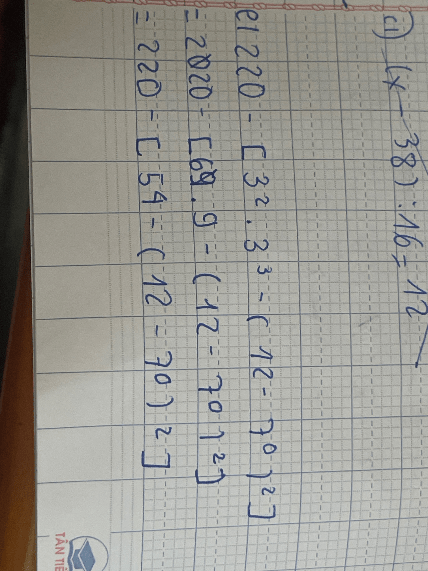 d) (x - 38) : 16 = 12
e) 220 - [3². 3³ - (12 - 7⁰)²]
= 220 - [6.9 - (12 - 7⁰)²]
= 220 - [54 - (12 - 7⁰)²]
TÂN TIẾ